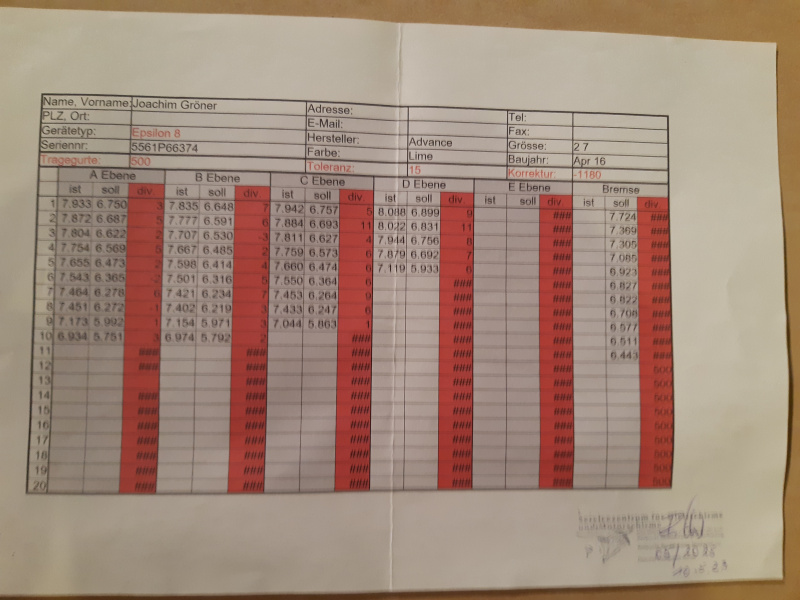 Name, Vorname: Joachim Gröner Adresse: Tel:
PLZ, Ort: E-Mail: Fax:
Gerätetyp: Epsilon 8 Hersteller: Advance Grösse: 2 7
Seriennr: 5561P66374 Farbe: Lime Baujahr: Apr 16
Tragegurte: 500 Toleranz: 15 Korrektur: -1180
A Ebene B Ebene C Ebene D Ebene E Ebene Bremse
ist soll div. ist soll div. ist soll div. ist soll div. ist soll div. ist soll div.
1 7.933 6.750 3 7.835 6.648 7 7.942 6.757 5 8.088 6.899 9 ### 7.724 ###
2 7.872 6.687 5 7.777 6.591 6 7.884 6.693 11 8.022 6.831 11 ### 7.369 ###
3 7.804 6.622 2 7.707 6.530 -3 7.811 6.627 4 7.944 6.756 8 ### 7.305 ###
4 7.754 6.569 5 7.667 6.485 2 7.759 6.573 6 7.879 6.692 7 ### 7.085 ###
5 7.655 6.473 2 7.598 6.414 4 7.660 6.474 6 7.119 5.933 6 ### 6.923 ###
6 7.543 6.365 -2 7.501 6.316 5 7.550 6.364 6 ### ### 6.827 ###
7 7.464 6.278 6 7.421 6.234 7 7.453 6.264 9 ### ### 6.822 ###
8 7.451 6.272 -1 7.402 6.219 3 7.433 6.247 6 ### ### 6.708 ###
9 7.173 5.992 1 7.154 5.971 3 7.044 5.863 1 ### ### 6.577 ###
10 6.934 5.751 3 6.974 5.792 2 ### ### ### 6.511 ###
11 ### ### ### ### ### 6.443 ###
12 ### ### ### ### ### 500
13 ### ### ### ### 500
14 ### ### ### ### ### 500
15 ### ### ### ### ### 500
16 ### ### ### ### ### 500
17 ### ### ### ### ### 500
18 ### ### ### ### ### 500
19 ### ### ### ### ### 500
20 ### ### ### ### ### 500